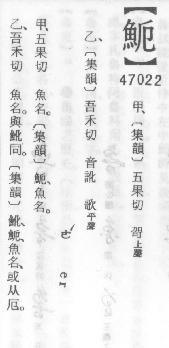 【䱂】
47022
甲、〔集韻〕五果切 哿上聲
乙、〔集韻〕吾禾切 音訛 歌平聲
ㄜˊ er
甲、五果切 魚名。〔集韻〕䱂、魚名。
乙、吾禾切 魚名。與魤同。〔集韻〕魤䱂、魚名、或从厄。